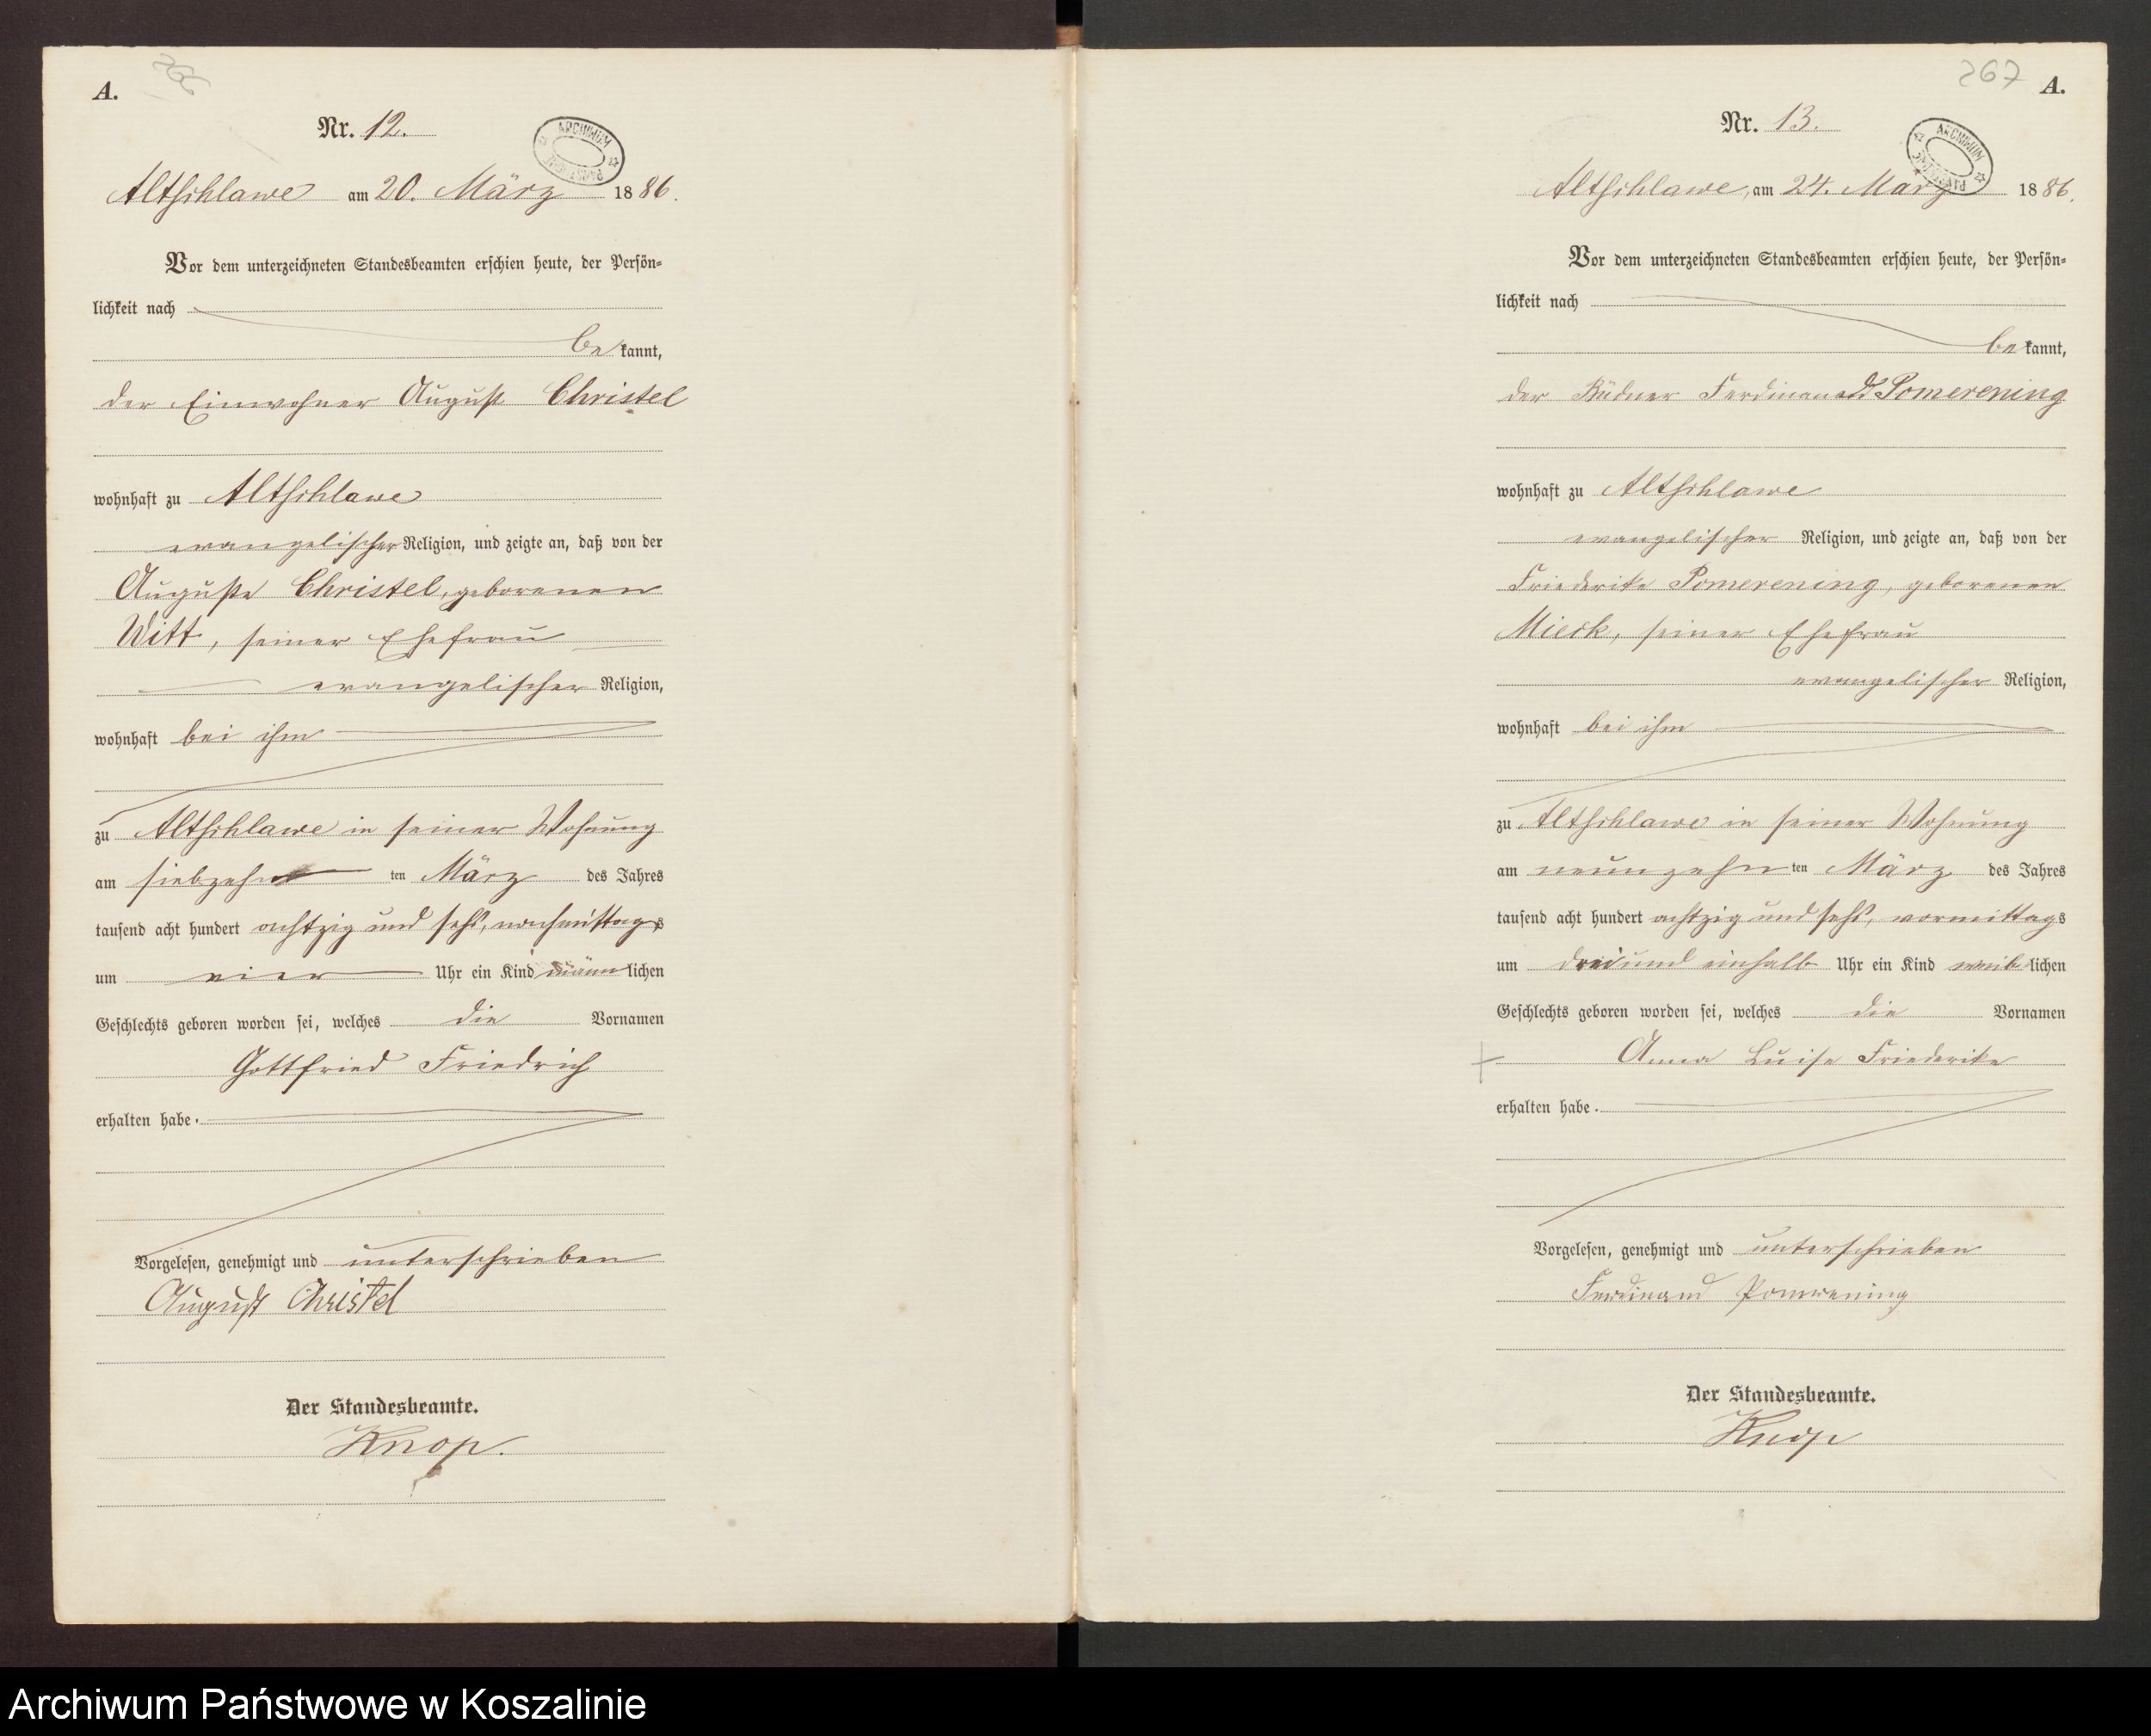 A.
266
Nr. 12.
ARCHIWUM
Altschlawe am 20. März 1886.
Vor dem unterzeichneten Standesbeamten erschien heute, der Persön=
lichkeit nach
be kannt,
der Einwohner August Christel
wohnhaft zu Altschlawe
evangelischer Religion, und zeigte an, daß von der
Auguste Christel, geborenen
Witt, seiner Ehefrau
evangelischer Religion,
wohnhaft bei ihm
zu Altschlawe in seiner Wohnung
am siebzehn ten März des Jahres
tausend acht hundert achtzig und sechs, nachmittags
um vier Uhr ein Kind männlichen
Geschlechts geboren worden sei, welches die Vornamen
Gottfried Friedrich
erhalten habe.
Vorgelesen, genehmigt und unterschrieben
August Christel
Der Standesbeamte.
Knop.
267
A.
Nr. 13.
ARCHIWUM
Altschlawe, am 24. März 1886.
Vor dem unterzeichneten Standesbeamten erschien heute, der Persön=
lichkeit nach
be kannt,
der Büdner Ferdinand Pomerening
wohnhaft zu Altschlawe
evangelischer Religion, und zeigte an, daß von der
Friederike Pomerening, geborenen
Mieck, seiner Ehefrau
evangelischer Religion,
wohnhaft bei ihm
zu Altschlawe in seiner Wohnung
am neunzehn ten März des Jahres
tausend acht hundert achtzig und sechs, vormittags
um drei und einhalb Uhr ein Kind weiblichen
Geschlechts geboren worden sei, welches die Vornamen
Anna Luise Friederike
erhalten habe.
Vorgelesen, genehmigt und unterschrieben
Ferdinand Pomrening
Der Standesbeamte.
Knop
Archiwum Państwowe w Koszalinie